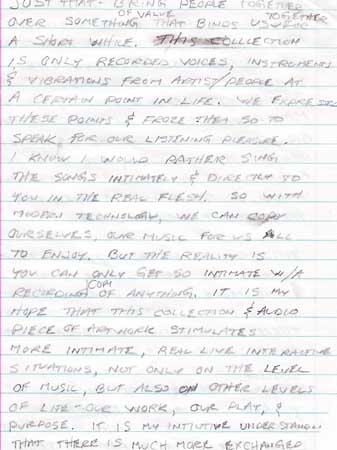 JUST THAT - BRING PEOPLE TOGETHER
OVER SOMETHING ^OF VALUE THAT BINDS US TOGETHER FOR
A SHORT WHILE. THIS COLLECTION
IS ONLY RECORDED VOICES, INSTRUMENTS
& VIBRATIONS FROM ARTIST/PEOPLE AT
A CERTAIN POINT IN LIFE. WE EXPRESS
THESE POINTS & FROZE THEM SO TO
SPEAK FOR OUR LISTENING PLEASURE.
I KNOW I WOULD RATHER SING
THE SONGS INTIMATELY & DIRECTLY TO
YOU IN THE REAL FLESH. SO WITH
MODERN TECHNOLOGY, WE CAN COPY
OURSELVES, OUR MUSIC FOR US ALL
TO ENJOY. BUT THE REALITY IS
YOU CAN ONLY GET SO INTIMATE W/A
RECORDING OF ANYTHING. IT IS MY
HOPE THAT THIS COLLECTION & AUDIO
PIECE OF ARTWORK STIMULATES
MORE INTIMATE, REAL LIVE INTERACTIVE
SITUATIONS, NOT ONLY ON THE LEVEL
OF MUSIC, BUT ALSO ON OTHER LEVELS
OF LIFE - OUR WORK, OUR PLAY, &
PURPOSE. IT IS MY INTUITIVE UNDERSTANDING
THAT THERE IS MUCH MORE EXCHANGED